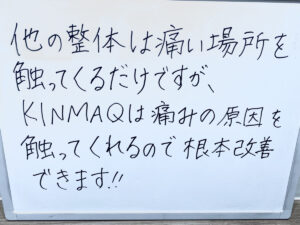 他の整体は痛い場所を
触ってくるだけですが、
KINMAQは痛みの原因を
触ってくれるので根本改善
できます!!